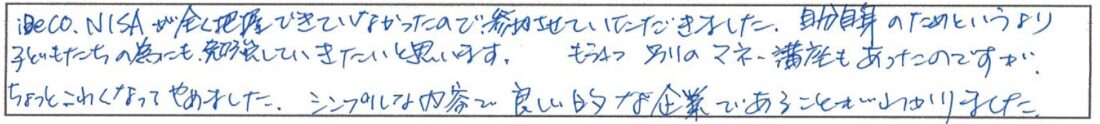 iDeCo、NISAが全く把握できていなかったので参加させていただきました。自分自身のためというより
子どもたちの為にも勉強していきたいと思います。 もう1つ別のマネー講座もあったのですが、
ちょっとこわくなってやめました。シンプルな内容で良心的な企業であることがわかりました。